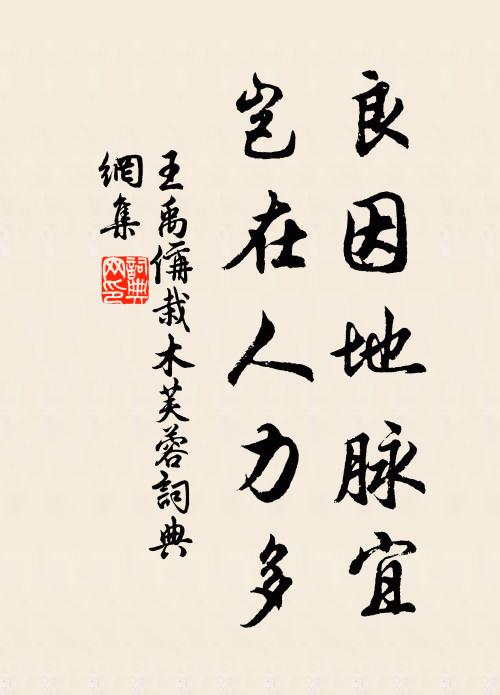 良因地脉宜
岂在人力多
王禹偁栽木芙蓉詞典
網集
詞典網印